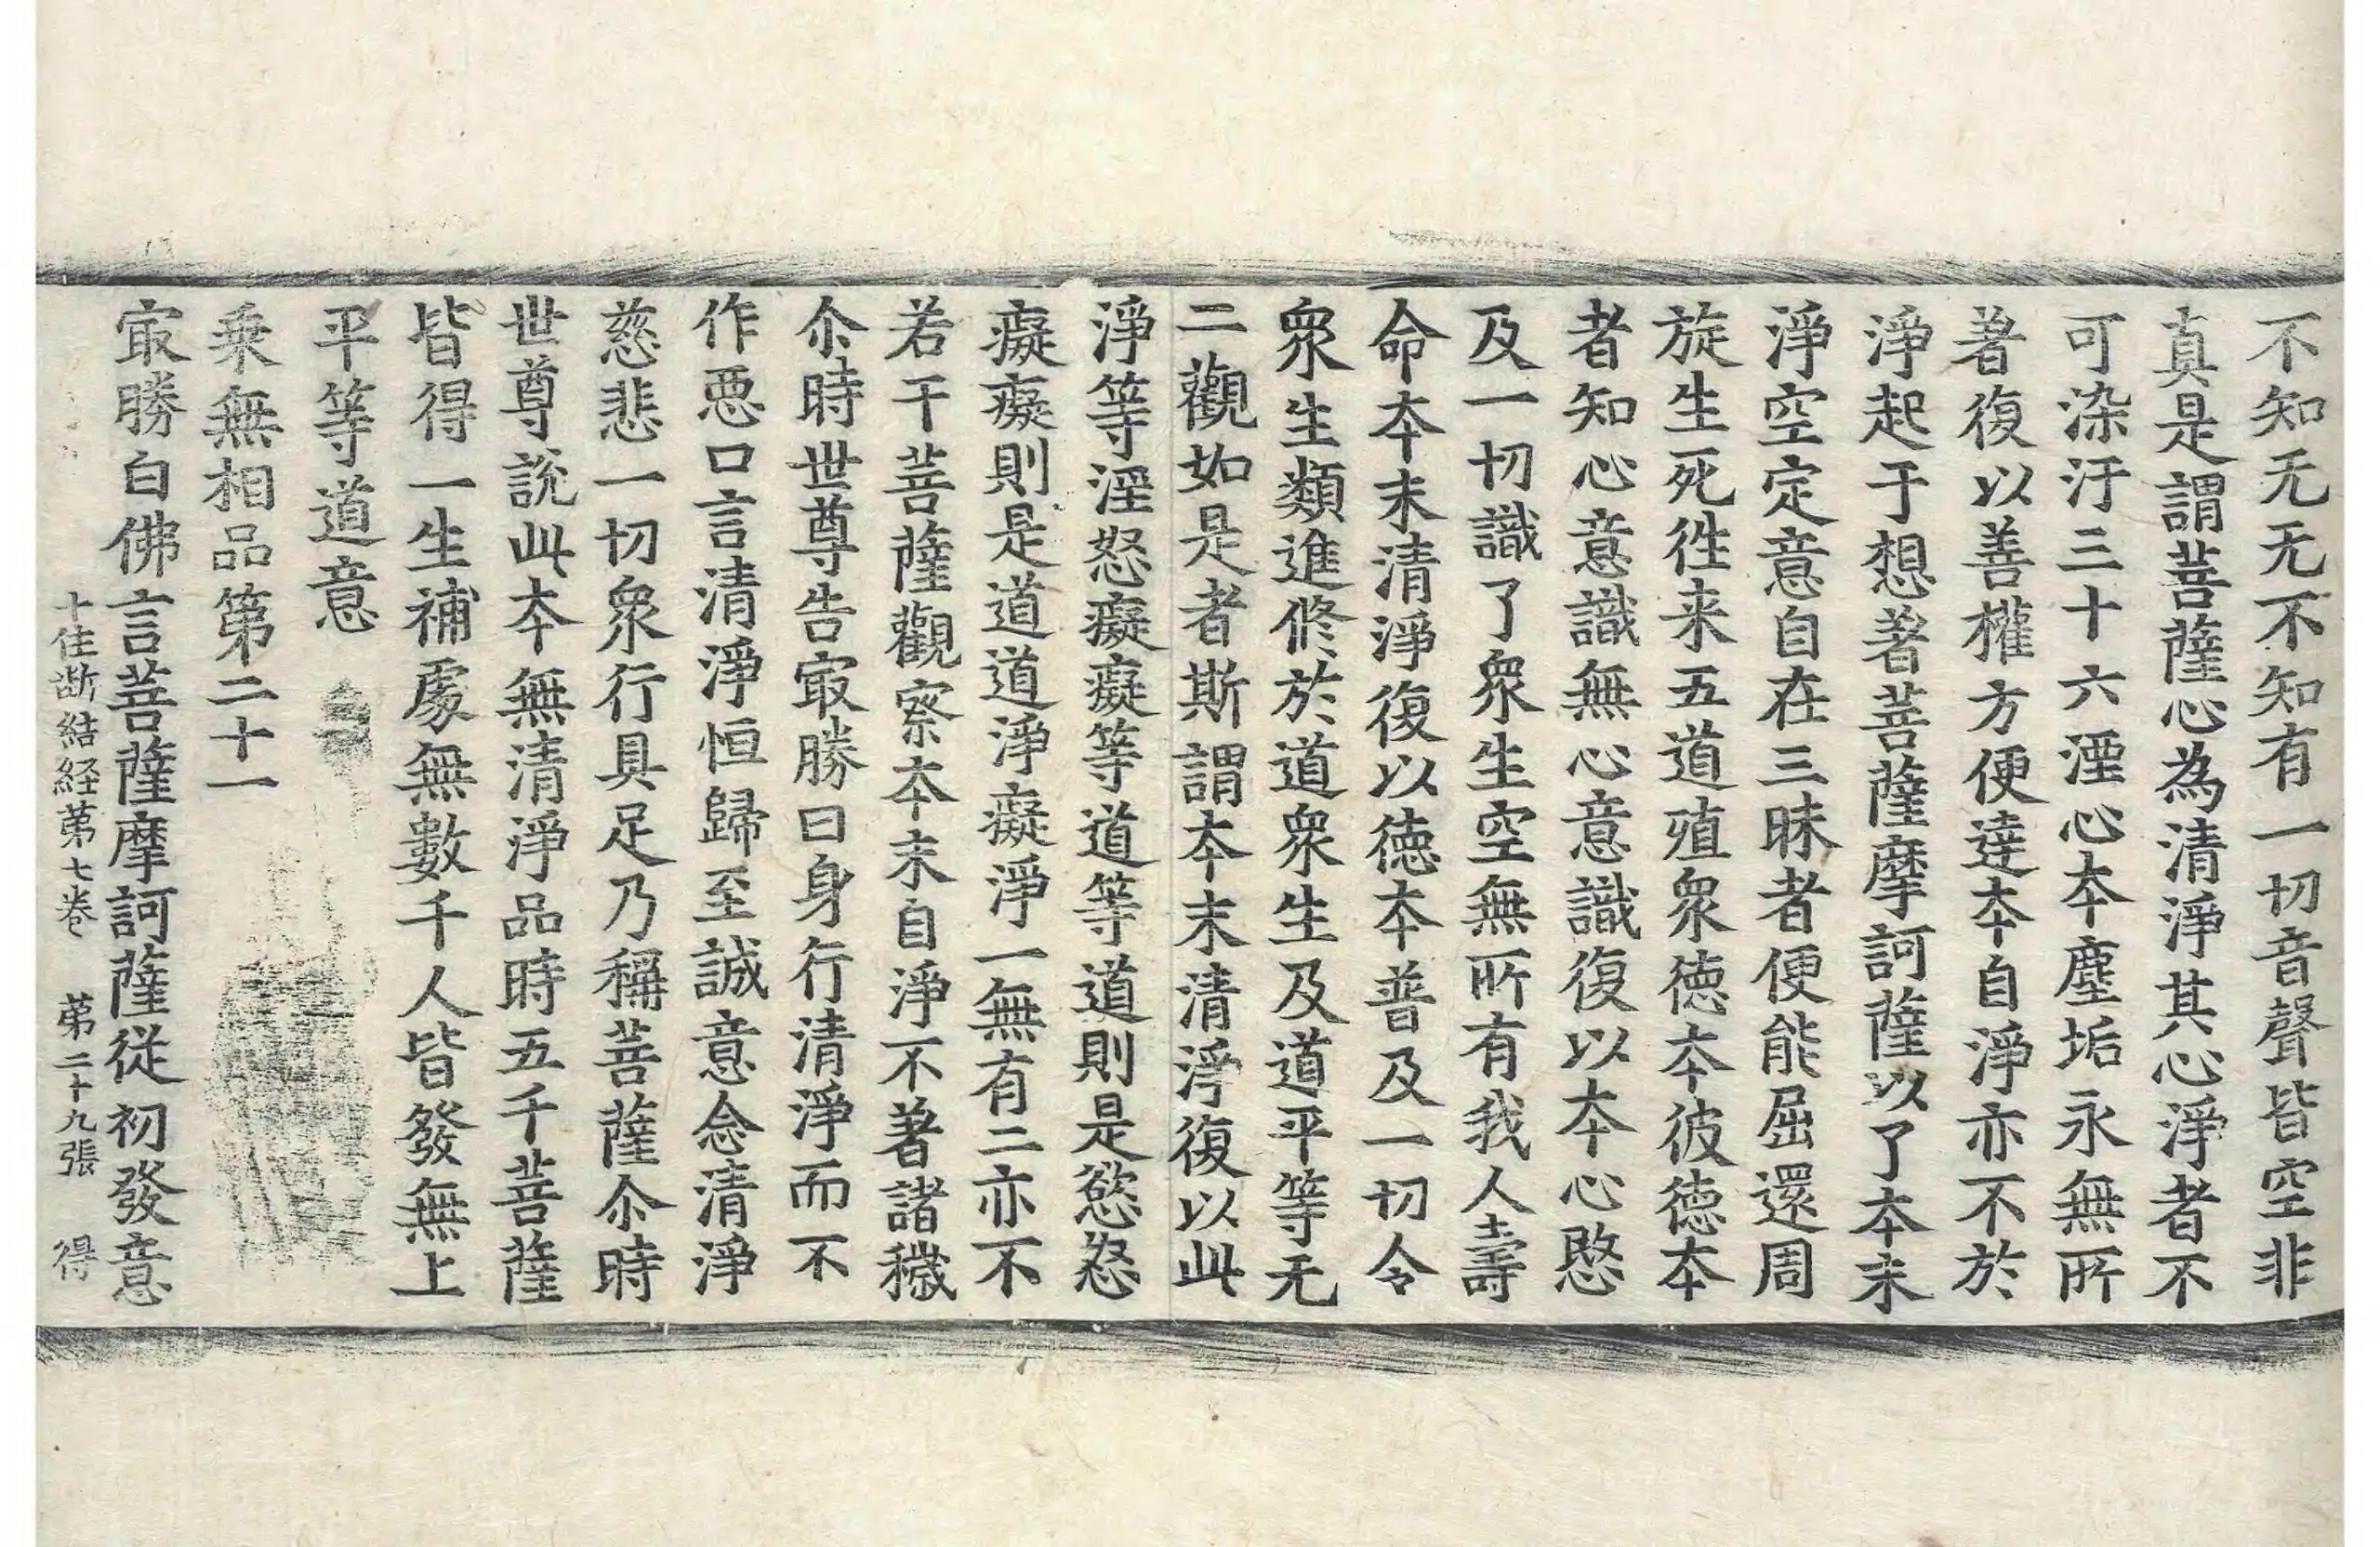 不知无无不知有一切音聲皆空非
真是謂菩薩心為清淨其心淨者不
可染汙三十六湮心夲塵垢永無所
著復以善權方便達夲自淨亦不於
淨起于想著菩薩摩訶薩以了夲末
淨空定意自在三昧者便能屈還周
旋生死徃来五道殖衆徳夲彼徳夲
者知心意識無心意識復以夲心愍
及一切識了衆生空無所有我人壽
命夲末清淨復以徳夲普及一切令
衆生類進修於道衆生及道平等无
二觀如是者斯謂夲末清淨復以此
淨等淫怒癡癡等道等道則是慾怒
癡癡則是道道淨癡淨一無有二亦不
若干菩薩觀察夲末自淨不著諸穢
尒時世尊告㝡勝曰身行清淨而不
作惡口言清淨恒歸至誠意念清淨
慈悲一切衆行具足乃稱菩薩尒時
世尊說此夲無清淨品時五千菩薩
皆得一生補處無數千人皆發無上
平等道意
乘無相品第二十一
㝡勝白佛言菩薩摩訶薩從初發意
十住斷結経苐七卷 苐二十九張 得